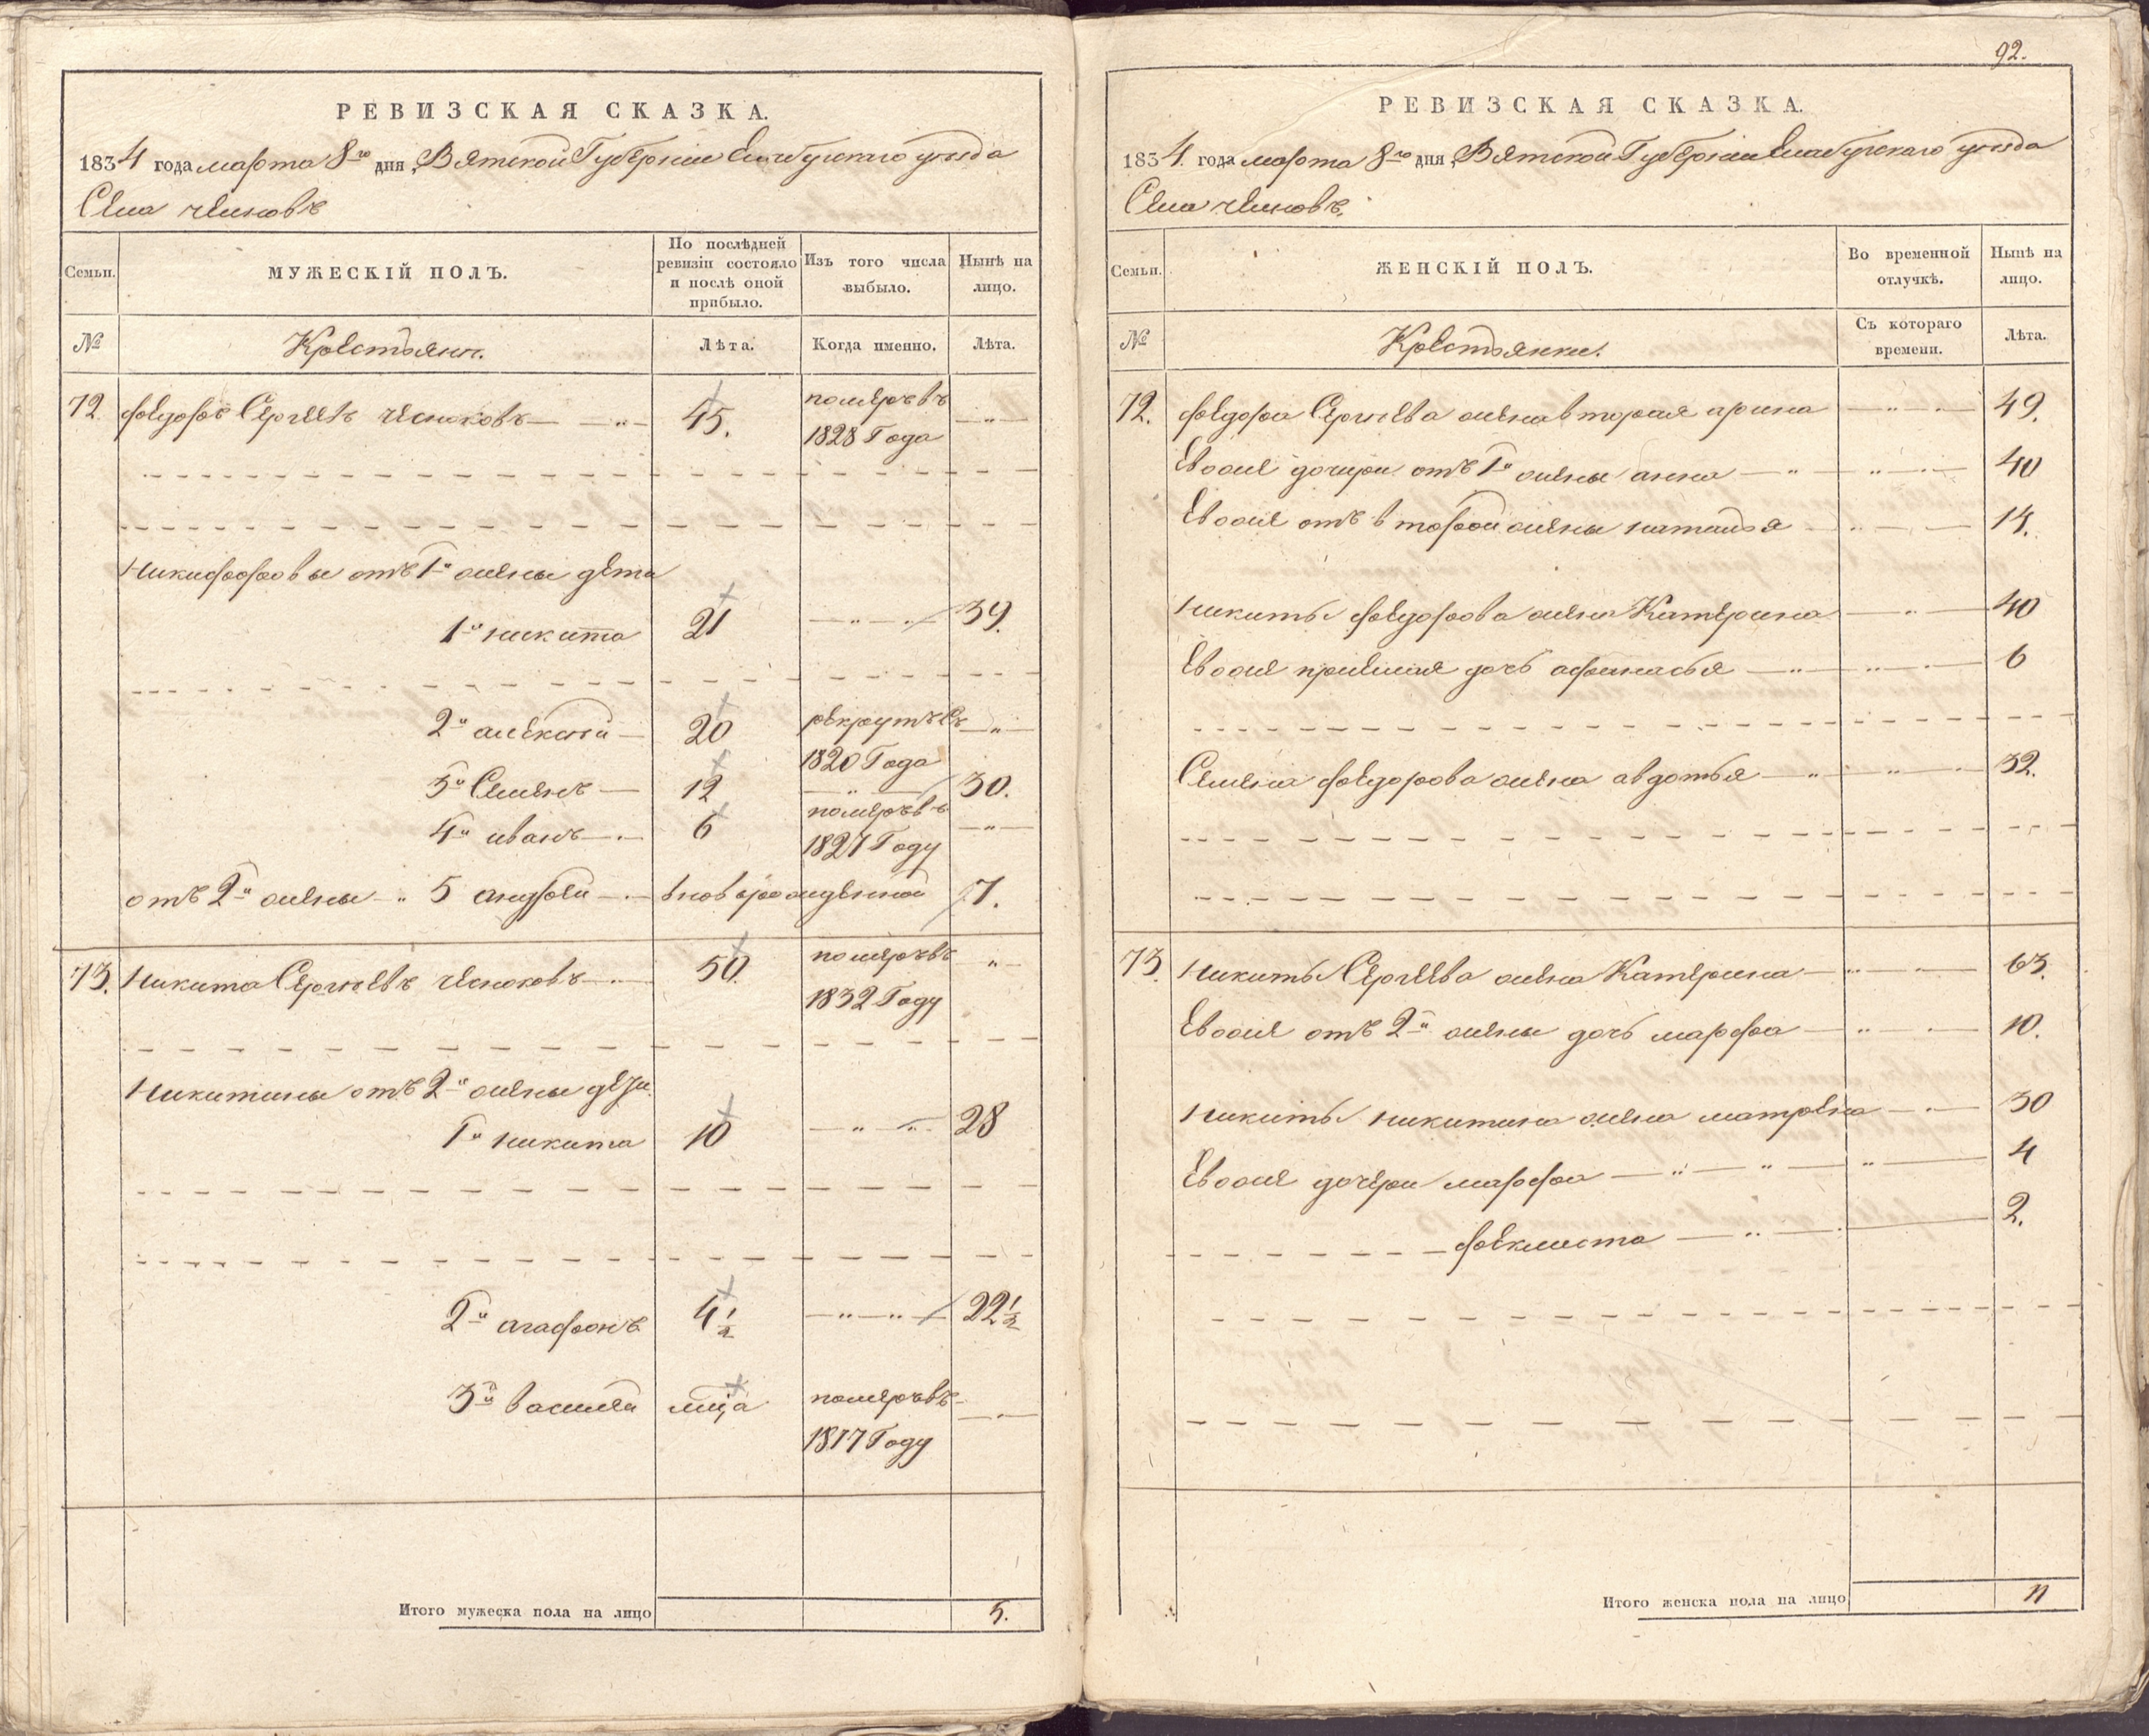 РЕВИЗСКАЯ СКАЗКА.
1834 года марта 8го дня, Вятской Губернии Елабужскаго уѣзда
Села
Семьи. МУЖЕСКІЙ ПОЛЪ. По послѣдней ревизіи состояло и послѣ оной прибыло. Изъ того числа выбыло. Нынѣ на лицо.
№ Крестьяни. Лѣта. Когда именно. Лѣта.
72 федоръ Сергѣевъ чесноковъ 45. померъ въ
1828 Года
Никифоровы отъ 1й жены дети
1й никита 21 39.
2й алексѣй 20 рекрутъ съ
1820 Года
3й Семенъ 12 30.
4й иванъ 6 померъ въ
1827 Году
отъ 2й жены 5 андрей вновьрожденной 7.
73. Никита Сергѣевъ чесноковъ 50. померъ въ
1832 Году
Никитины отъ 2й жены дети
1й никита 10 28
2й агафонъ 4 1/2 22 1/2
3й василей мца померъ въ
1817 Году
Итого мужеска пола на лицо 5.
92.
РЕВИЗСКАЯ СКАЗКА.
1834. года марта 8го дня, Вятской Губерніи Елабужскаго уѣзда
Села
Семьи. ЖЕНСКІЙ ПОЛЪ. Во временной отлучкѣ. Нынѣ на лицо.
№ Крестьянки. Съ котораго времени. Лѣта.
72. федора Сергѣева жена вторая арина 49.
Евоже дочери отъ 1й жены анна 40
Евоже отъ второй жены наталья 14.
Никиты федорова жена Катерина 40
Евоже дочь афанасья 6
Семена федорова жена авдотья 32.
73 Никиты Сергѣева жена Катерина 63.
Евоже отъ 2й жены дочь марфа 10.
Никиты никитина жена матрена 30
Евоже дочери марфа 4
феклиста 2.
Итого женска пола на лицо 11